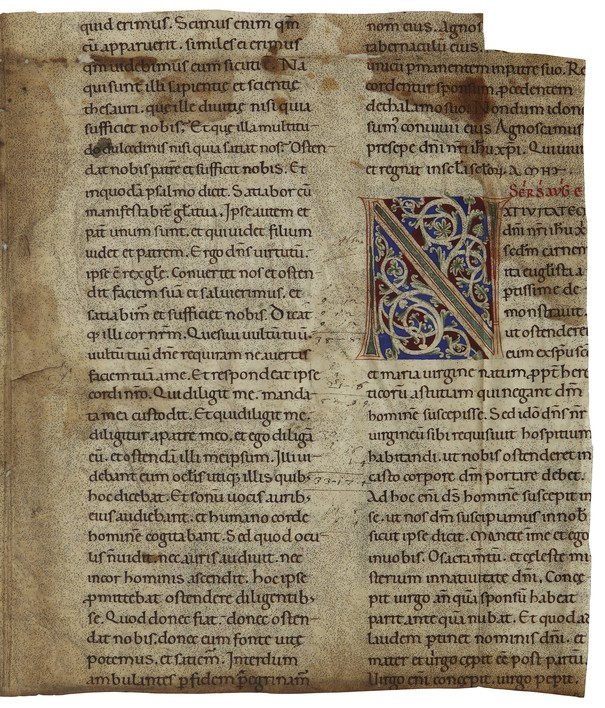 quid erimus. Scimus enim qm̄
cū apparuerit. similes ei erimus
qm̄ uidebimus eum sicuti ē. Na
qui sunt illi sapientie et scientie
thesauri. que ille diuitie nisi quia
sufficiet nobis. Et que illa multitu
do dulcedinis nisi quia satiat nos. Osten
dat nobis patrē et sufficit nobis. Et
in quodā psalmo dicit. Satiabor cū
manifestabit̄ gl̄a tua. Ipse autem et
pat̄ unum sunt. et qui uidet filium
uidet et patrem. Ergo dn̄s uirtutū.
ipse ē rex gl̄e. Conuertet nos et osten
dit faciem suā et salui erimus. et
satiabim̄ et sufficiet nobis. Dicat
q; illi cor nr̄m. Quesiui uultū tuū.
uultū tuū dn̄e requiram ne auertis
faciem tuā a me. Et respondeat ipse
cordi nr̄o. Qui diligit me. manda
ta mei custodit. Et qui diligit me.
diligitur a patre meo. et ego diligā
eū. et ostendā illi meipsum. Illi ui
debant eum oc̄lis utiq; illis quib;
hoc dicebat. Et sonū uocis aurib;
eius audiebant. et humano corde
hominē cogitabant. Sed quod ocu
lis n̄ uidit. nec auris audiuit. nec
in cor hominis ascendit. hoc ipse
ꝓmittebat ostendere diligentib;
se. Quod donec fiat. donec osten
dat nobis. donec eum fonte uite
potemus. et satiem̄. Interdum
ambulantes ꝑ fidem peregrinam̄
nom eius. Agnos
tabernaculū eius.
unici ꝑmanentem in patre suo. Re
cordentur sponsum. ꝓcedentem
de thalamo suo. Nondum idone
sum; conuiuii eius Agnoscamus
presepe dn̄i nr̄i ihu xp̄i. Qui uiuit
et regnat in sc̄la sc̄lorū. AMHN.
SER S AUG E
NATIUITATE
dn̄i nr̄i ihu x
sedm̄ carnem
ita euglista
ptissime de
monstrauit.
ut ostendere
eum ex sp̄u sc̄o
et maria uirgine natum. ꝓpt̄ here
ticorū astutiam qui negant dm̄
hominē suscepisse. Sed ido dn̄s nr̄
uirgineū sibi requisiuit hospitium
habitandi. ut nobis ostenderet in
casto corpore dm̄ portare debet.
Ad hoc eni ds̄ hominē suscepit in
se. ut nos dm̄ suscipiamus in nob
sicut ipse dicit. Manete in me et ego
in uobis. O sacram̄tū. et celeste mi
sterium in natiuitate dn̄i. Conce
pit uirgo an̄ quā sponsū habeat
parit ante qua nubat. Et quod ad
laudem ptinet nominis dn̄i. et
mater et uirgo cepit eē post partū.
Uirgo eni concepit. uirgo pepit.